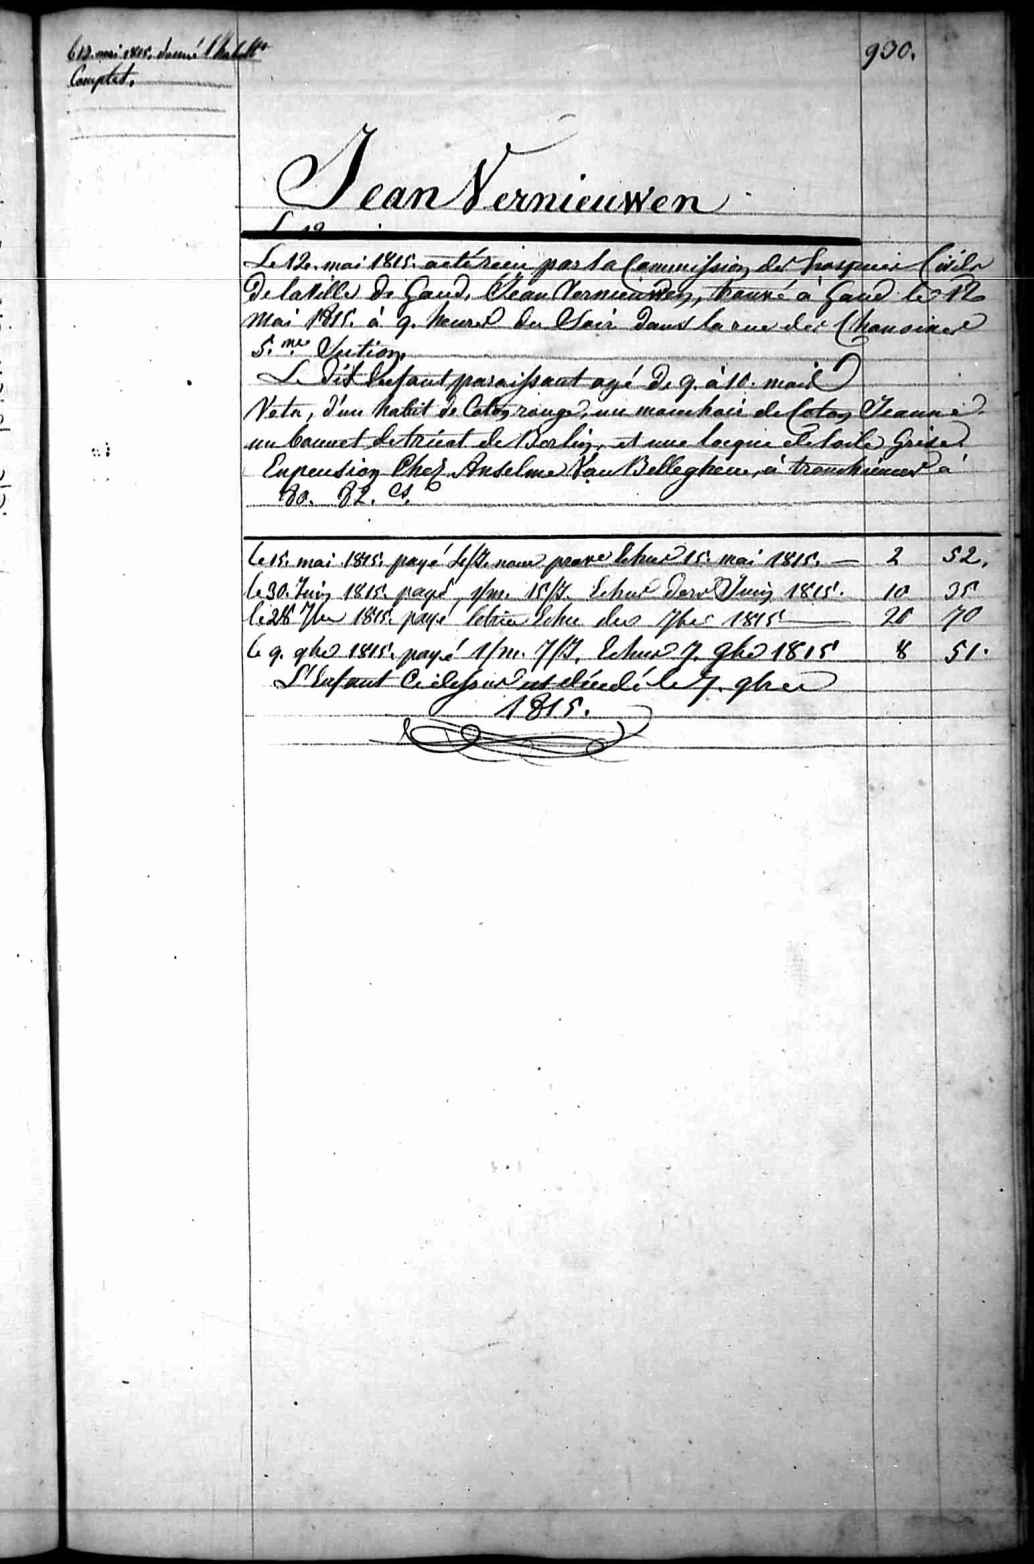 le 12. mai 1815. donné l'habillt
Complet.
930.
Jean Vernieuwen
Le 12
Le 12. mai 1815. a été reçu par la Commission des hospices Civils
De la Ville de Gand, Jean Vernieuwen, trouvé à Gand le 12
mai 1815. à 9. heures du Soir dans la rue des Chanoines
5.me Section.
Le dit Enfant paraissant agé de 9. à 10. mois
Vetu, d'un habit de Coton rouge, un mouchoir de Coton Jeaune
un bonnet de tricot de Berlin, et une locque de toile Grise.
En pension Chez Anselme Van Belleghem, à tronchiennes à
80. 82. cs.
le 15. mai 1815. payé échus 15. mai 1815. — 2 52.
le 30. Juin 1815. payé, 1/m. 15/J. Echus derr Juin 1815. 10 35
le 28 7bre 1815. payé letrim Echu der 7bre 1815 — 26 70
le 9. 9bre 1815. payé 1/m. 7/J. Echus 7. 9bre 1815 8 51.
L'Enfant Cidessus est décédé le 7. 9bre
1815.